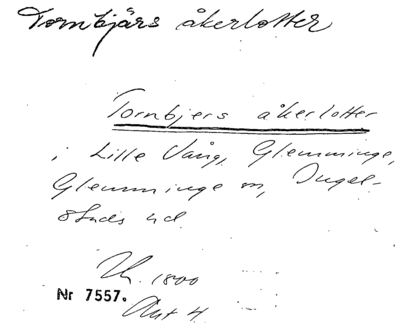 Tornbjärs åkerlotter
Tornbjers åkerlotter
i Lille Vång, Glemminge,
Glemminge sn, Ingel-
stads hd
1800
Nr 7557.
Ant 4